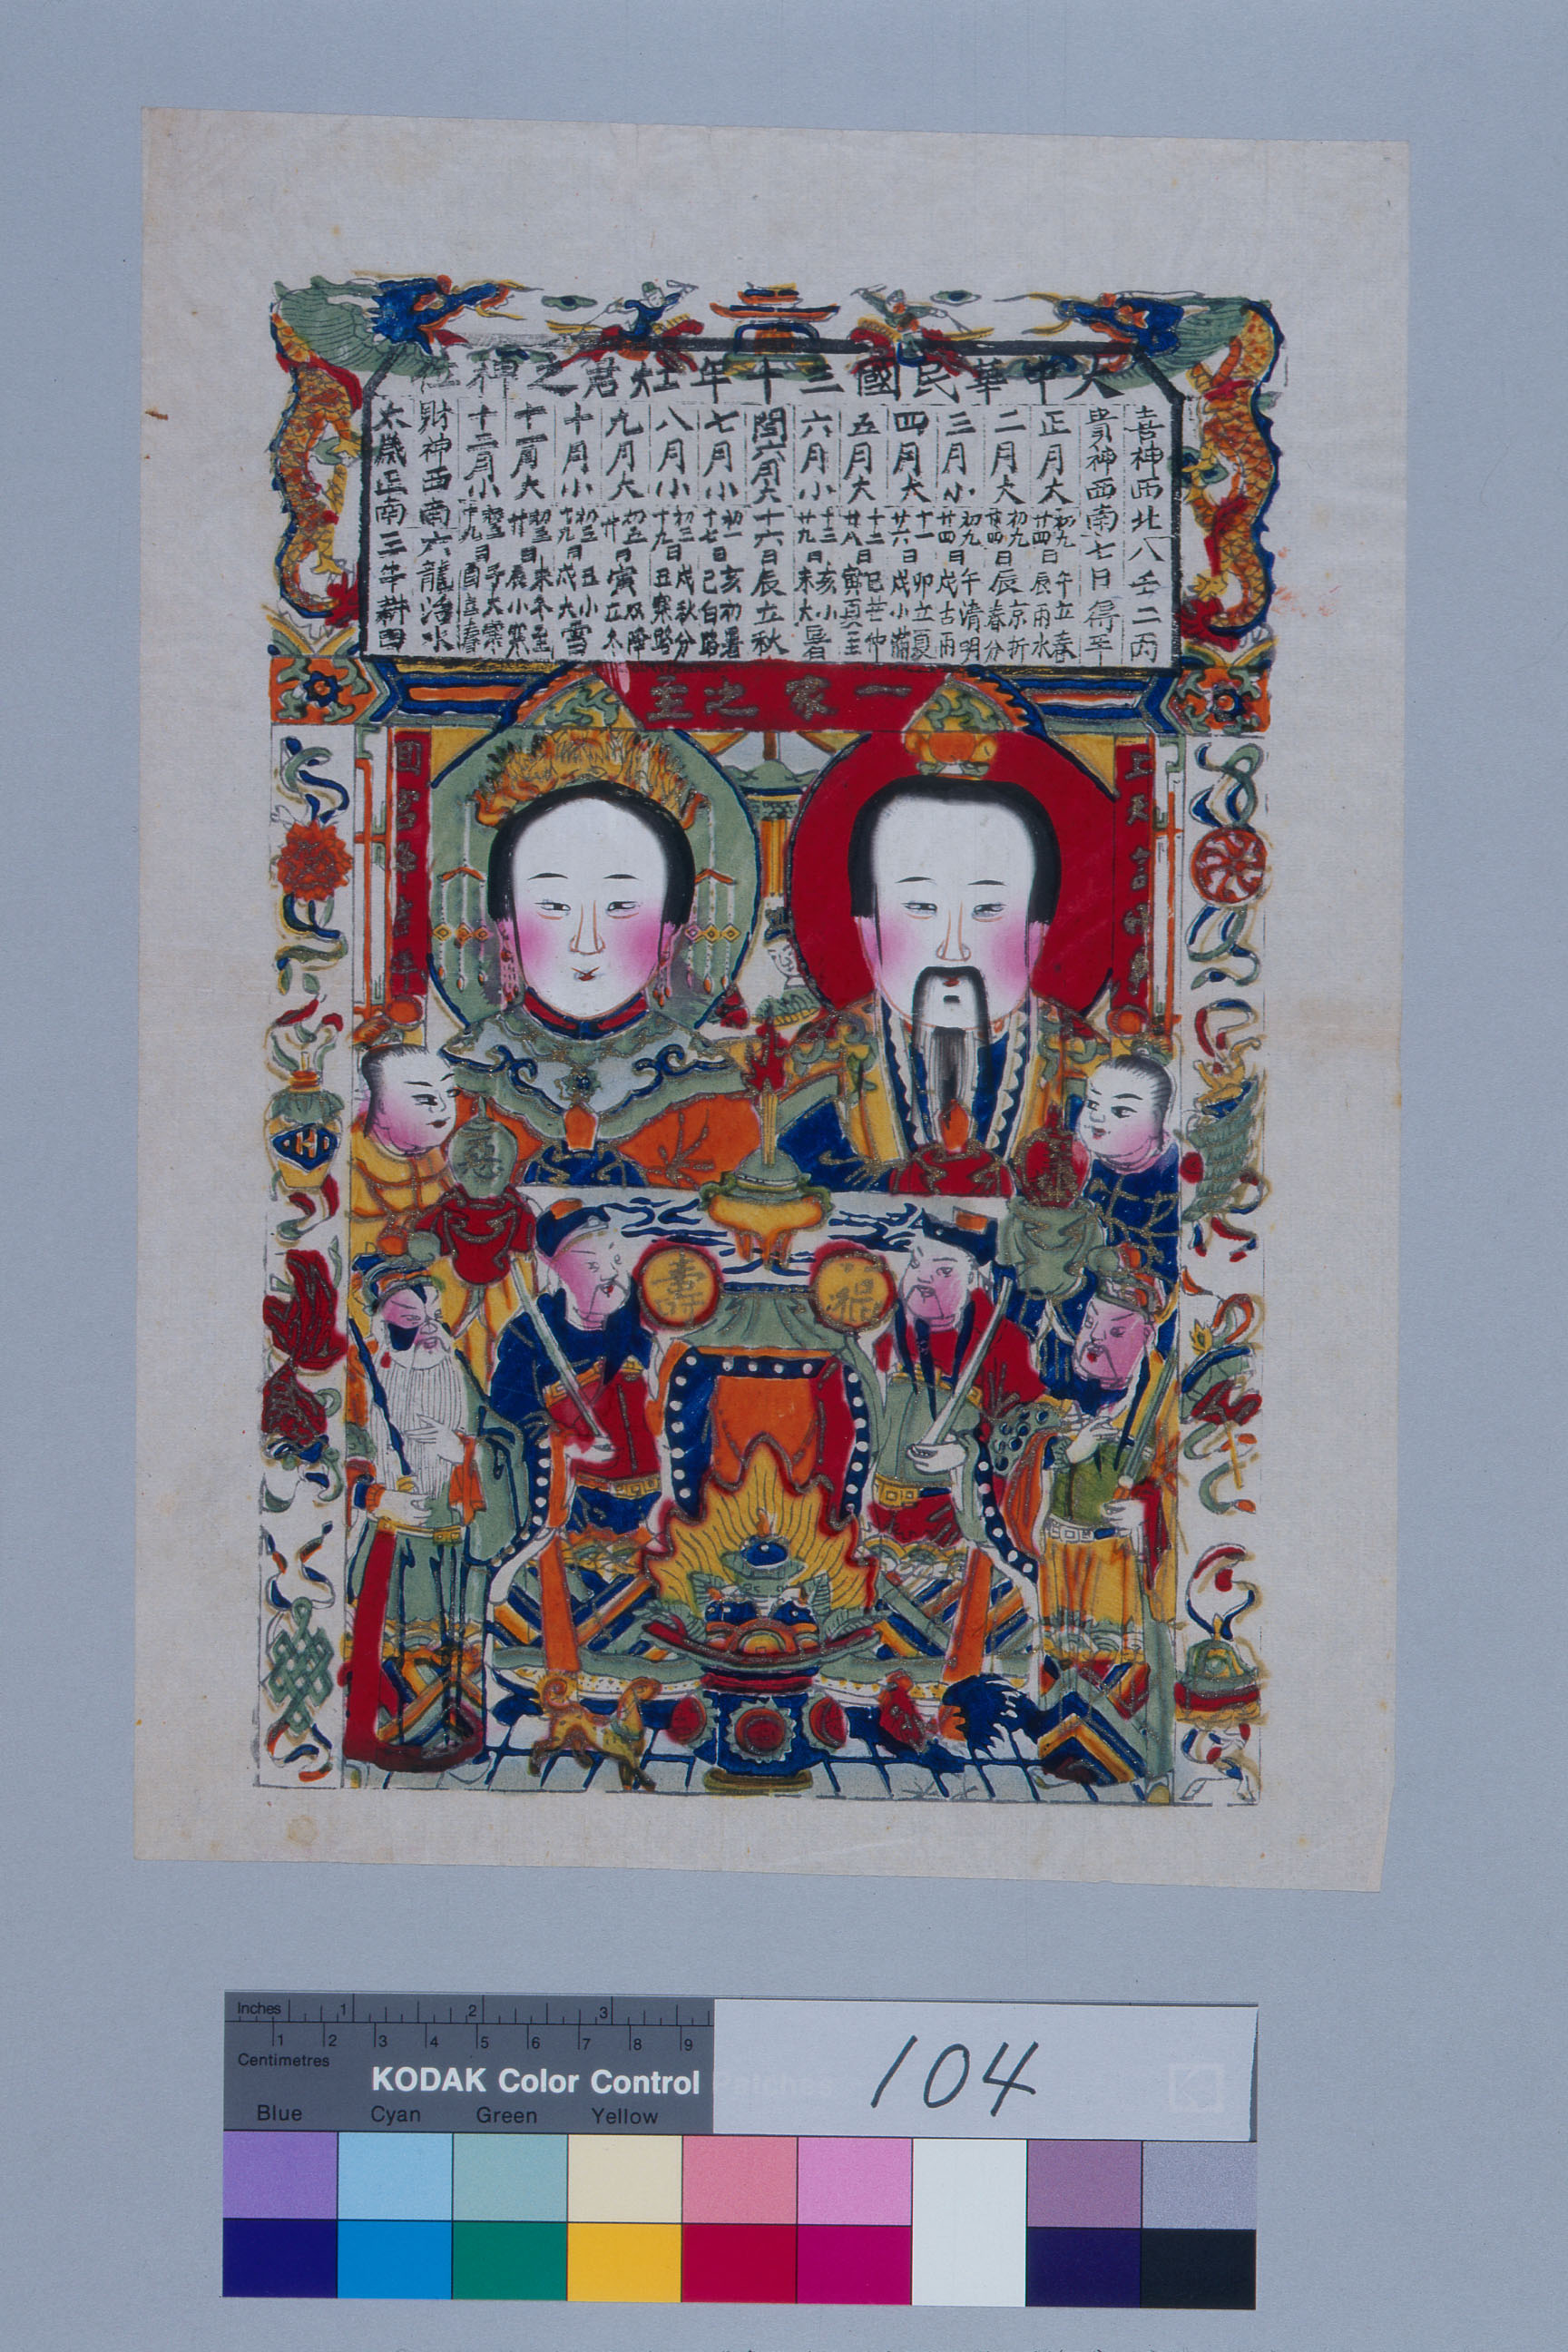 大中華民國三十年灶君之神位
喜神西北八壬二丙
貴神西南七日得辛
正月大初九日午立春廿四日辰雨水
二月大初九日辰京折廿四日辰春分
三月小初九日午清明廿四日戌古雨
四月大十一日卯立夏廿六日戌小滿
五月大十二日巳芒仲廿八日寅夏至
六月小十三日亥小暑廿九日未大暑
閏六月大十六日辰立秋
七月小初一日亥初暑十七日巳白路
八月小初三日戌秋分十九日丑寒路
九月大初五日寅双降廿日寅立冬
十月小初五日丑小雪十九日戌大雪
十一月大初五日未冬至廿日辰小寒
十二月小初五日子大寒十九日酉立春
財神西南六龍治水
太歲正南三牛耕田
一家之主
上天言好事
回宮降吉祥
壽
福
Inches 1 2 3
1 2 3 4 5 6 7 8 9
Centimetres
KODAK Color Control Patches
104
Blue Cyan Green Yellow